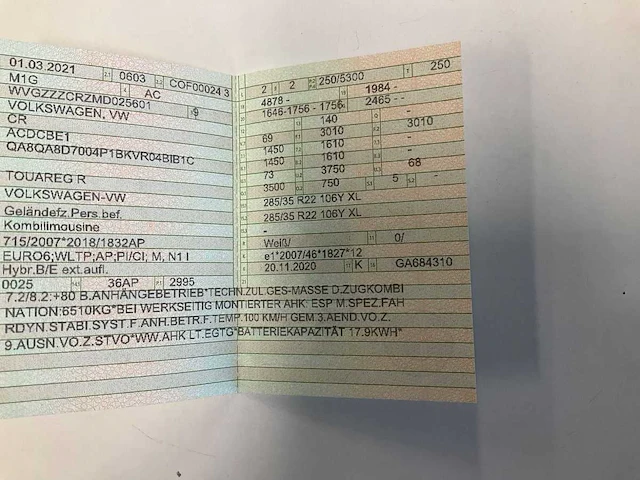 01.03.2021 0603 COF00024 3
M1G AC
WVGZZZCRZMD025601 9
VOLKSWAGEN, VW
CR
ACDCBE1
QA8QA8D7004P1BKVR04BIB1C
TOUAREG R
VOLKSWAGEN-VW
Geländefz.Pers.bef.
Kombilimousine
715/2007*2018/1832AP
EURO6;WLTP;AP;PI/CI; M, N1 I
Hybr.B/E ext.aufl.
0025 36AP 2995
2 2 250/5300 250
4878 - 1984 -
1646-1756 - 1756 2465 - -
140
69 3010 3010
1450 1610
1450 1610
73 3750 68
3500 750 5 -
285/35 R22 106Y XL
285/35 R22 106Y XL
-
Weiß/ 0/
e1*2007/46*1827*12
20.11.2020 K GA684310
7.2/8.2:+80 B.ANHÄNGEBETRIEB*TECHN.ZUL GES-MASSE D.ZUGKOMBI
NATION:6510KG*BEI WERKSEITIG MONTIERTER AHK: ESP M.SPEZ.FAH
RDYN.STABI.SYST.F.ANH.BETR.F.TEMP.100 KM/H GEM.3.AEND.VO.Z.
9.AUSN.VO.Z.STVO*WW.AHK LT.EGTG*BATTERIEKAPAZITÄT 17.9KWH*